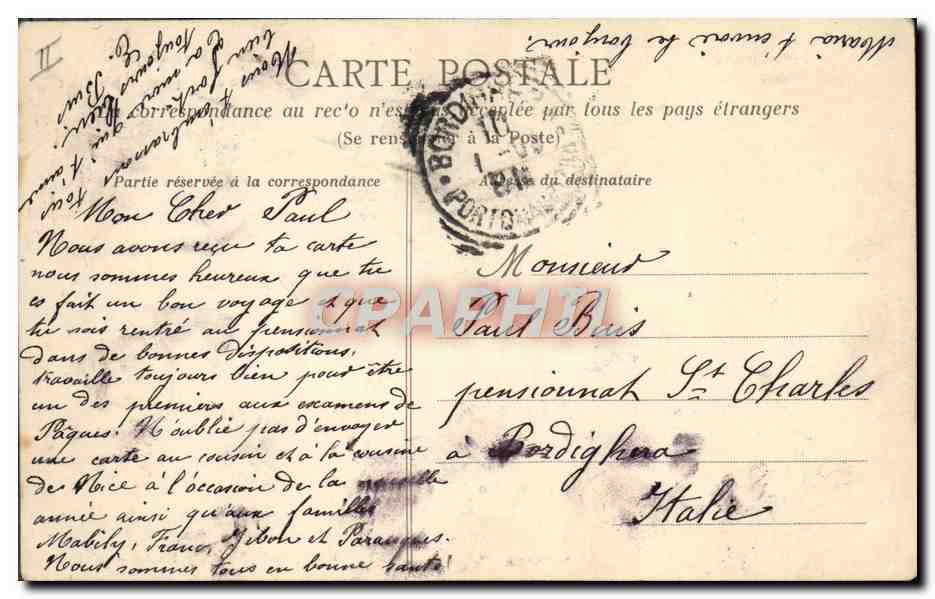 II
CARTE POSTALE
La correspondance au recto n'est pas acceptée par tous les pays étrangers
(Se renseigner à la Poste)
Partie réservée à la correspondance
Adresse du destinataire
BORDIGHERA
10
PORTO MAURIZIO
Mon Cher Paul
Nous avons reçu ta carte
nous sommes heureux que tu
es fait un bon voyage et que
tu sois rentré au pensionnat
dans de bonnes dispositions.
travaille toujours bien pour être
un des premiers aux examens de
Pâques. N'oublie pas d'envoyer
une carte au cousin et à la cousine
de Nice à l'occasion de la nouvelle
année ainsi qu'aux familles
Mabily, Franc, et
Nous sommes tous en bonne santé!
Nous t'embrassons tous
bien fort qui t'aime
Ta mère
toujours
Maria t'envoie le bonjour.
Monsieur
Paul Buis
pensionnat St Charles
à Bordighera
Italie
CPAPHIL